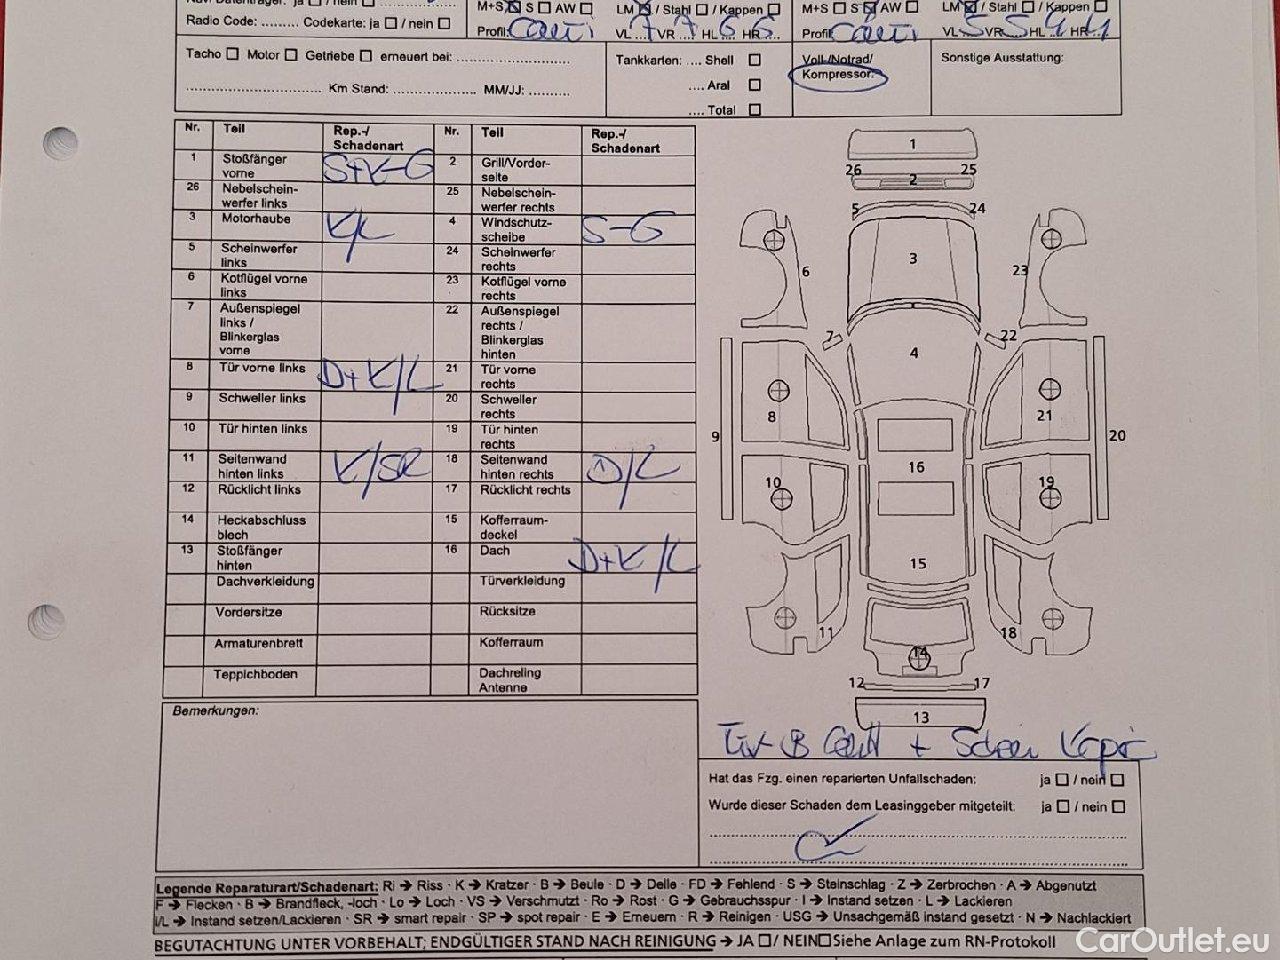 M+S ☒ S ☐ AW ☐ LM ☒ / Stahl ☐ / Kappen ☐ M+S ☐ S ☒ AW ☐ LM ☒ / Stahl ☐ / Kappen ☐
Radio Code: ......... Codekarte: ja ☐ / nein ☐
Profil: Conti VL ..7 VR ..7 HL .6 HR .6 Profil: Conti VL 5 VR 5 HL 4 HR 4
Tacho ☐ Motor ☐ Getriebe ☐ erneuert bei:
Km Stand: MM/JJ:
Tankkarten: .... Shell ☐
.... Aral ☐
.... Total ☐
Voll-/Notrad/
Kompressor:
Sonstige Ausstattung:
Nr. Teil Rep.-/ Nr. Teil Rep.-/
Schadenart Schadenart
1 Stoßfänger S+K-G 2 Grill/Vorder-
vorne seite
26 Nebelschein- 25 Nebelschein-
werfer links werfer rechts
3 Motorhaube K/L 4 Windschutz- S-G
scheibe
5 Scheinwerfer 24 Scheinwerfer
links rechts
6 Kotflügel vorne 23 Kotflügel vorne
links rechts
7 Außenspiegel 22 Außenspiegel
links / rechts /
Blinkerglas Blinkerglas
vorne hinten
8 Tür vorne links D+K/L 21 Tür vorne
rechts
9 Schweller links 20 Schweller
rechts
10 Tür hinten links 19 Tür hinten
rechts
11 Seitenwand K/SR 18 Seitenwand D/L
hinten links hinten rechts
12 Rücklicht links 17 Rücklicht rechts
14 Heckabschluss 15 Kofferraum-
blech deckel
13 Stoßfänger 16 Dach D+K/L
hinten
Dachverkleidung Türverkleidung
Vordersitze Rücksitze
Armaturenbrett Kofferraum
Teppichboden Dachreling
Antenne
1
26 2 25
5 24
6 3 23
7 22
4
8 21
9 20
16
10 19
15
11 18
14
12 17
13
Bemerkungen:
Hat das Fzg. einen reparierten Unfallschaden: ja ☐ / nein ☐
Wurde dieser Schaden dem Leasinggeber mitgeteilt: ja ☐ / nein ☐
Legende Reparaturart/Schadenart: Ri → Riss · K → Kratzer · B → Beule · D → Delle · FD → Fehlend · S → Steinschlag · Z → Zerbrochen · A → Abgenutzt
F → Flecken · B → Brandfleck, -loch · Lo → Loch · VS → Verschmutzt · Ro → Rost · G → Gebrauchsspur · I → Instand setzen · L → Lackieren
I/L → Instand setzen/Lackieren · SR → smart repair · SP → spot repair · E → Erneuern · R → Reinigen · USG → Unsachgemäß instand gesetzt · N → Nachlackiert
BEGUTACHTUNG UNTER VORBEHALT; ENDGÜLTIGER STAND NACH REINIGUNG → JA ☐ / NEIN ☐ Siehe Anlage zum RN-Protokoll
CarOutlet.eu